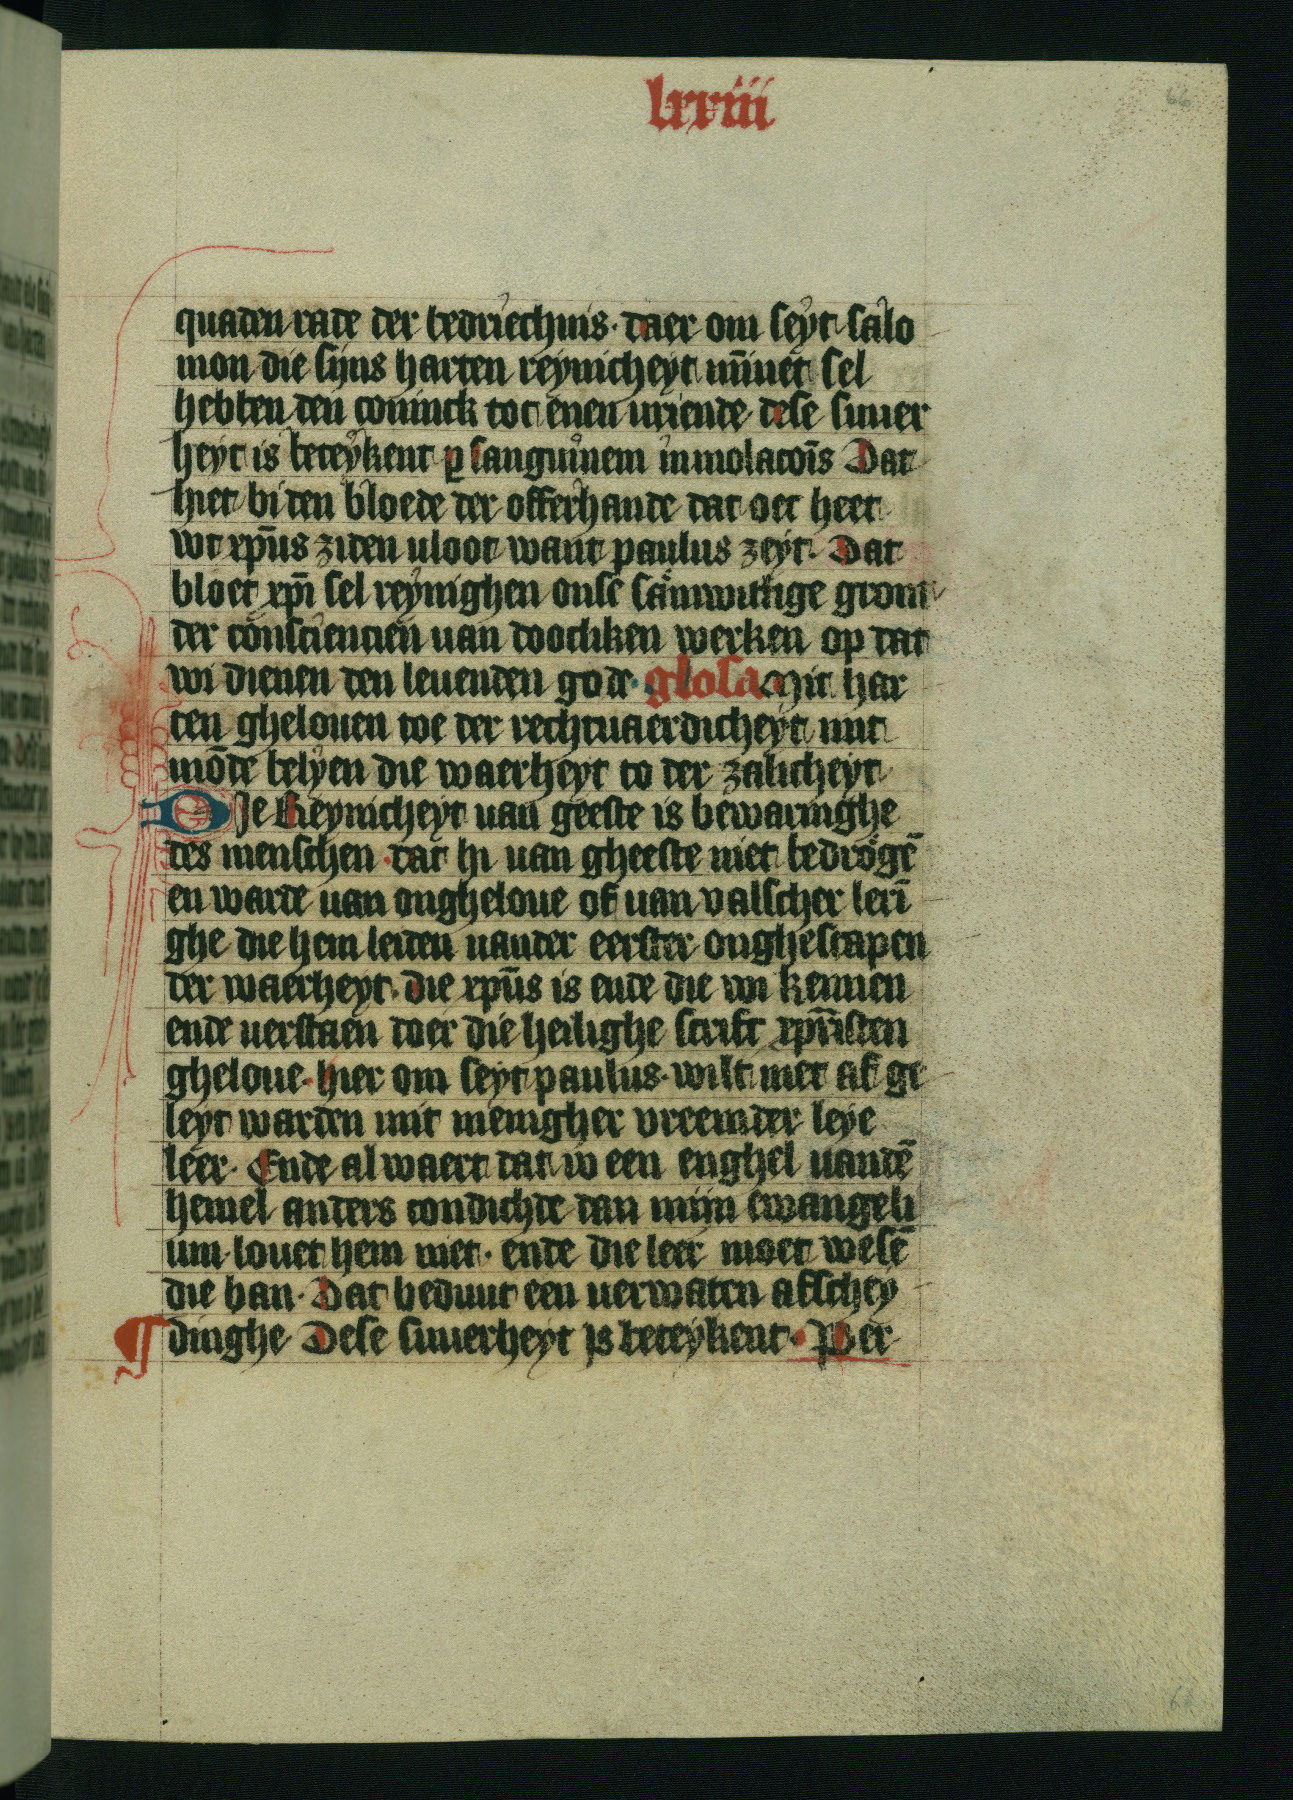 lxxiii
66
quaden rade der bedriechnis· daer om seyt salo
mon die sijns harten reynicheyt mīnet sel
hebben den coninck tot enen vriende dese suuer
heyt is beteykent ꝑ sanguinem inmolatoīs Dat
hiet bi den bloede der offerhande dat oet heet
wt xp̄us ziden vloot want paulus zeyt· Dat
bloet xp̄i sel reynighen onse
der consciencien uan doothken werken op dat
wi dienen den leuenden gode· glosa Mit har
ten ghelouen toe der rechtuaerdicheyt mit
mōde belyen die waerheyt to der zalicheyt
DIe Reynicheyt uan geeste is bewaringhe
des menschen· dat hi uan gheeste niet bedrogē
en warde uan ongheloue of uan valscher lerī
ghe die hem leiden uander eerster onghescapen
der waerheyt· die xp̄us is ende die wi kennen
ende uerstaen doer die heilighe scrift xp̄risten
gheloue· hier om seyt paulus· wilt niet af ge
leyt warden mit menigher vreemder leye
leer· Ende al waert dat iv een enghel uandē
hemel anders condichde dan mijn ewangeli
um· louet hem niet· ende die leer moet wesē
die ban· Dat beduut een uerwaten afschey
¶ dinghe Dese suuerheyt is beteykent· Per